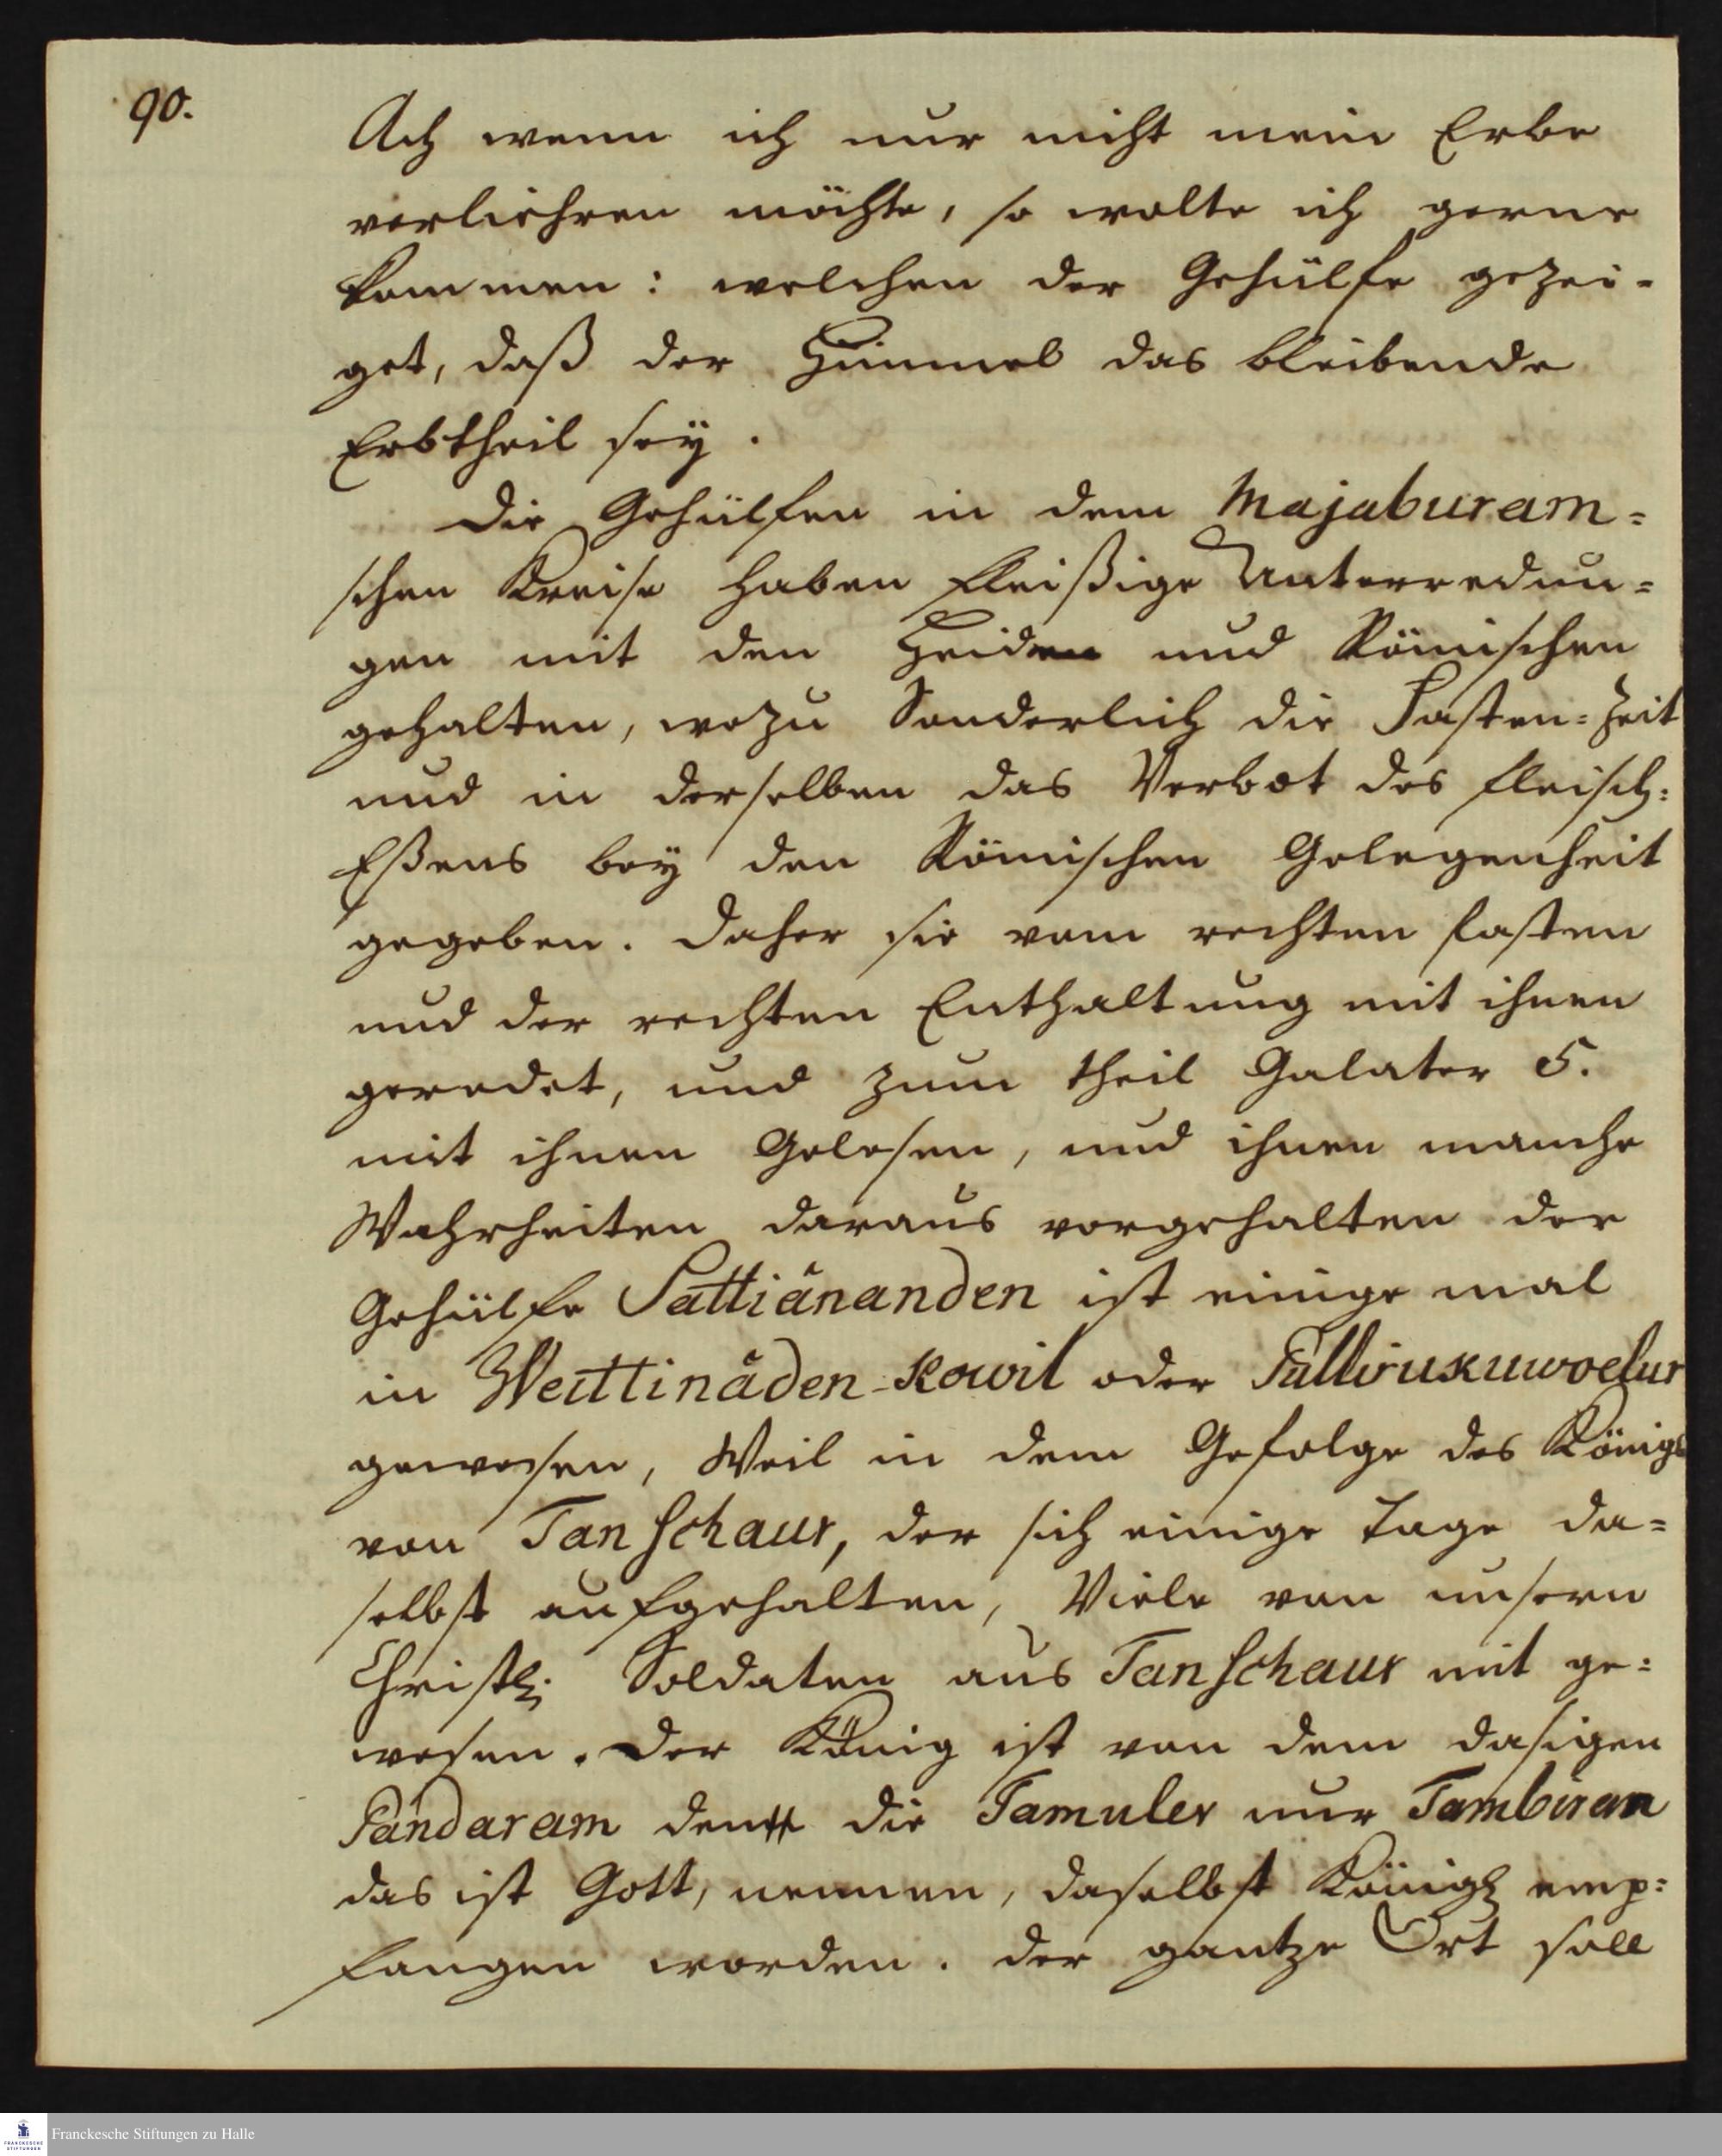 90.
Ach wenn ich nur nicht mein Erbe
verliehren möchte, so wolte ich gerne
kommen: welchen der Gehülfe gezei-
get, daß der Himmel das bleibende
Erbtheil sey.
Die Gehülfen in dem Majaburam=
schen Kreise haben fleißige Unterredun=
gen mit den Heiden und Römischen
gehalten, wozu Sonderlich die Fasten=Zeit
und in derselben das Verbot des fleisch=
Eßens bey den Römischen Gelegenheit
gegeben. Daher sie vom rechten fasten
und der rechten Enthaltung mit ihnen
geredet, und zum theil Galater 5.
mit ihnen Gelesen, und ihnen manche
Wahrheiten daraus vorgehalten der
Gehülfe Sattiânanden ist einige mal
in Weittinâden-Kowil oder
gewesen, Weil in dem Gefolge des Königs
von Tanschaur, der sich einige Tage da=
selbst aufgehalten, Viele von unsern
Christl. Soldaten aus Tanschaur mit ge=
wesen. Der König ist von dem dasigen
Pandaram den die Tamuler nur Tambiran
das ist Gott, nennen, daselbst Königl emp=
fangen worden. der gantze Ort soll
Franckesche Stiftungen zu Halle